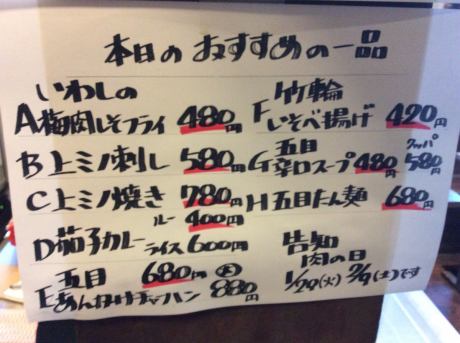 本日のおすすめの一品
いわしの
A梅肉しそフライ 480円
B上ミノ刺し 580円
C上ミノ焼き 780円
ルー 400円
D茄子カレー ライス 600円
五目 680円 大
Eあんかけチャーハン 880円
竹輪
Fいそべ揚げ 420円
五目 クッパ
G辛口スープ 480円 580円
H五目たん麺 680円
告知
肉の日
1/29(火) 2/9(土)です